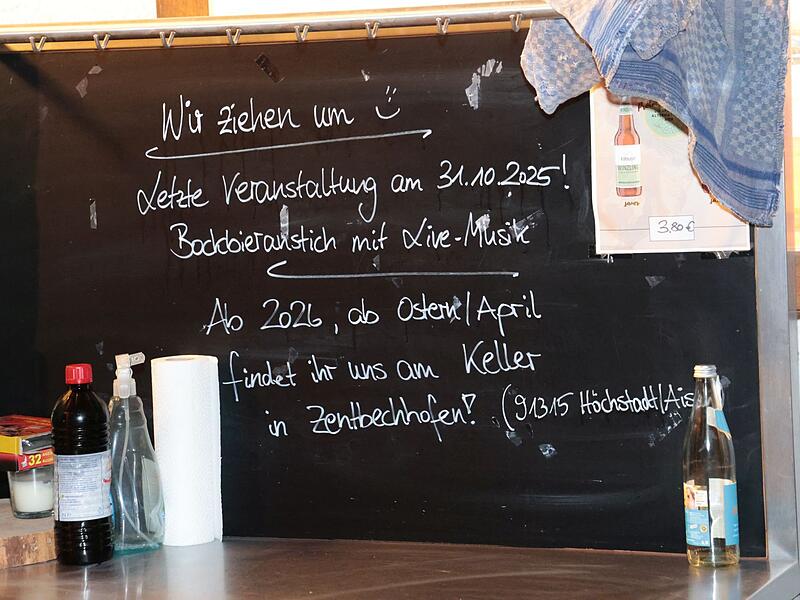 Wir ziehen um
Letzte Veranstaltung am 31.10.2025!
Bockbieranstich mit Live-Musik
Ab 2026, ab Ostern/April
findet ihr uns am Keller
in Zentbechhofen! (91315 Höchstadt/Ais
3,80 €
32